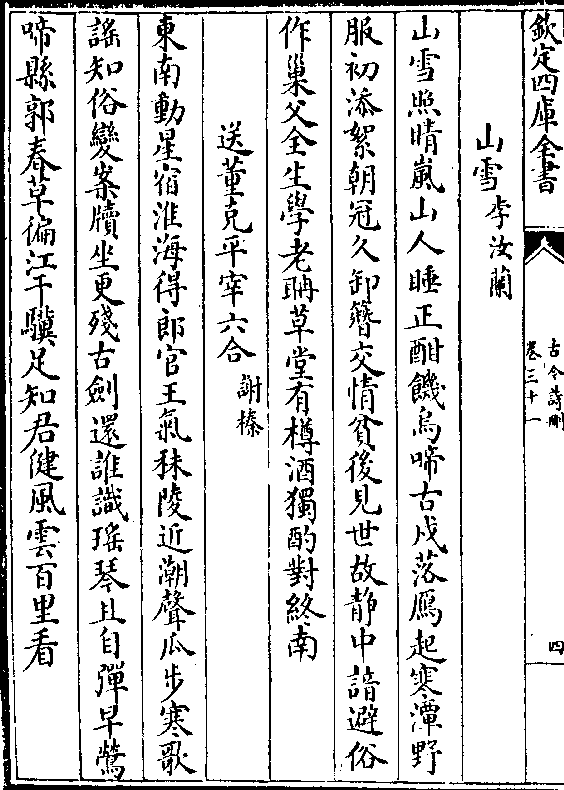 欽定四庫全書
古今詩刪
卷三十一
四
山雪 李汝蘭
山雪照晴嵐山人睡正酣饑烏啼古戍落鴈起寒潭野
服初添絮朝冠久卸簪交情貧後見世故静中諳避俗
作巢父全生學老聃草堂有樽酒獨酌對終南
送董克平宰六合 謝榛
東南動星宿淮海得郎官王氣秣陵近潮聲瓜步寒歌
謡知俗變案牘坐更殘古劍還誰識瑤琴且自彈早鶯
啼縣郭春草徧江干驥足知君健風雲百里看